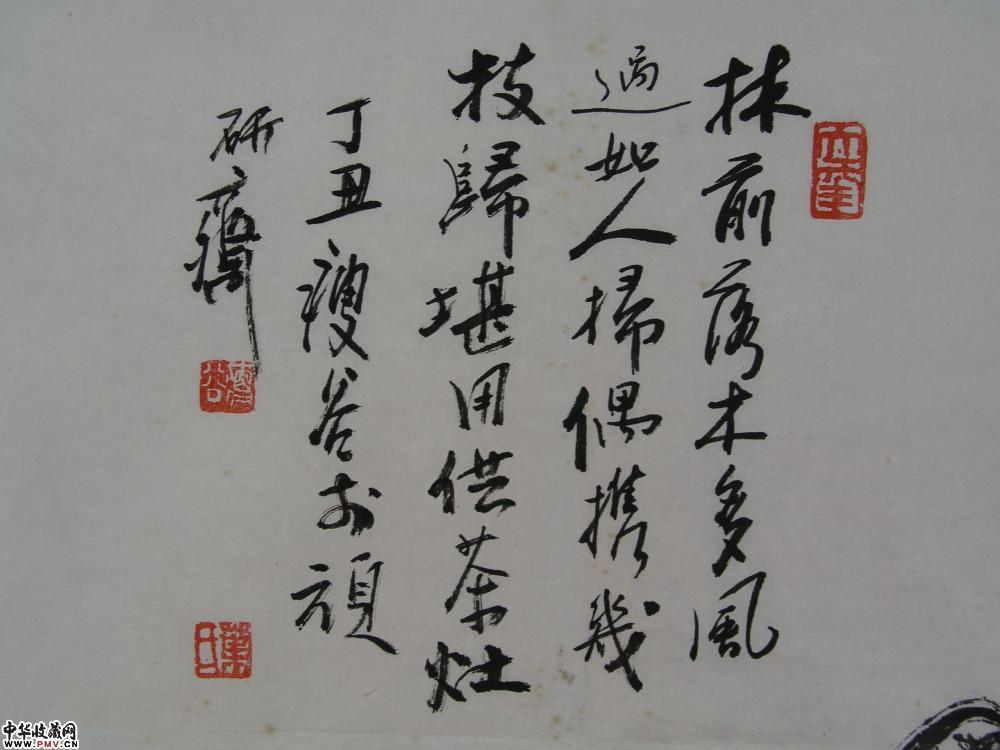 林前落木多風
過如人掃偶携幾
枝歸堪用供茶灶
丁丑瘦谷於頑
研齋
瘦谷
中华收藏网
WWW.PMV.CN